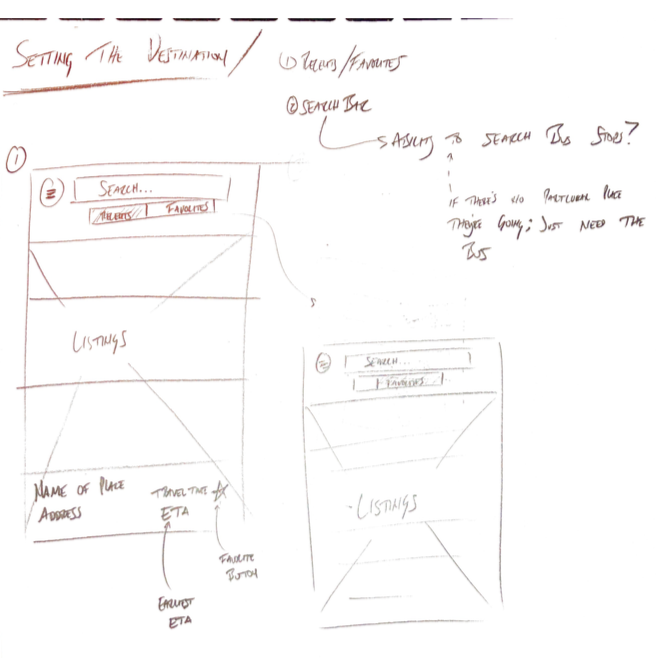 SETTING THE DESTINATION /
① RECENTS/FAVORITES
② SEARCH BAR
ABILITY TO SEARCH BUS STOPS?
IF THERE'S NO PARTICULAR PLACE
THEY'RE GOING; JUST NEED THE
BUS
①
SEARCH...
RECENTS | FAVORITES
LISTINGS
NAME OF PLACE
ADDRESS
TRAVEL TIME
ETA
FAVORITE
BUTTON
EARLIEST
ETA
SEARCH...
FAVORITES
LISTINGS